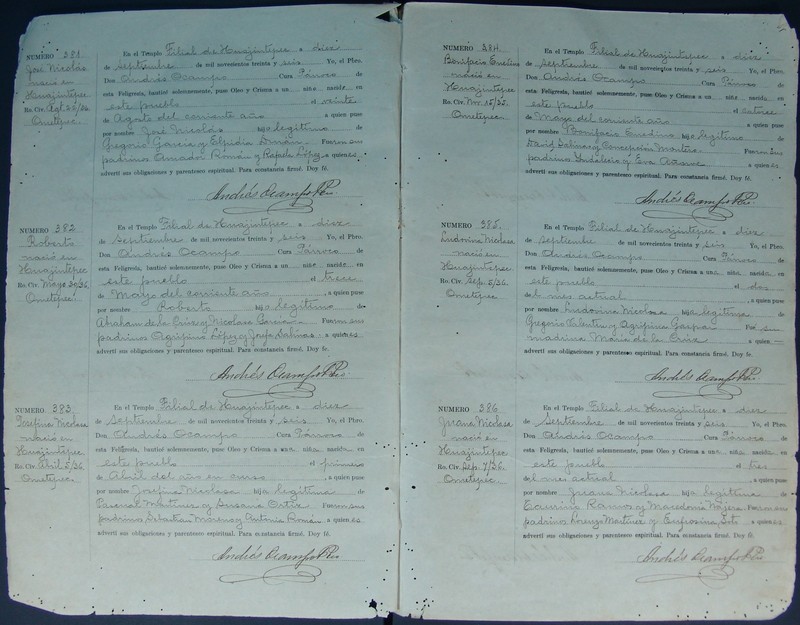 NUMERO 381
José Nicolás
nació en
Huajintepec
Ro. Civ.
Ometepec.
En el Templo Filial de Huajintepec a diez
de septiembre de mil novecientos treinta y seis Yo, el Pbro.
Don Andrés Ocampo Cura Párroco de
esta Feligresía, bauticé solemnemente, puse Oleo y Crisma a un niño nacido en
este pueblo el veinte
de Agosto del corriente año a quien puse
por nombre José Nicolás hijo legítimo de
Gregorio García y Elpidia Fueron sus
padrinos Amador Román y López, a quienes
advertí sus obligaciones y parentesco espiritual. Para constancia firmé. Doy fé.
Andrés Ocampo Pbro.
NUMERO 382
Roberto
nació en
Huajintepec
Ro. Civ. Mayo
Ometepec.
En el Templo Filial de Huajintepec a diez
de septiembre de mil novecientos treinta y seis Yo, el Pbro.
Don Andrés Ocampo Cura Párroco de
esta Feligresía, bauticé solemnemente, puse Oleo y Crisma a un niño nacido en
este pueblo el trece
de Mayo del corriente año, a quien puse
por nombre Roberto hijo legítimo de
Abraham de la Cruz y Nicolasa García. Fueron sus
padrinos Agripino López y Josefa Salinas a quienes
advertí sus obligaciones y parentesco espiritual. Para constancia firmé. Doy fe.
Andrés Ocampo Pbro.
NUMERO 383
Josefina Nicolasa
nació en
Huajintepec
Ro. Civ. Abril 5/36
Ometepec.
En el Templo Filial de Huajintepec a diez
de septiembre de mil novecientos treinta y seis Yo, el Pbro.
Don Andrés Ocampo Cura Párroco de
esta Feligresía, bauticé solemnemente, puse Oleo y Crisma a una niña nacida en
este pueblo el primero
de Abril del año en curso, a quien puse
por nombre Josefina Nicolasa hija legítima de
Pascual Martínez y Susana Ortiz. Fueron sus
padrinos Sebastián Moreno y Antonia Román, a quienes
advertí sus obligaciones y parentesco espiritual. Para constancia firmé. Doy fé.
Andrés Ocampo Pbro.
NUMERO 384
Bonifacio
nació en
Huajintepec
Ro. Civ. 15/35.
Ometepec
En el Templo Filial de Huajintepec a diez
de septiembre de mil novecientos treinta y seis Yo, el Pbro.
Don Andrés Ocampo Cura Párroco de
esta Feligresía, bauticé solemnemente, puse Oleo y Crisma a un niño nacido en
este pueblo el catorce
de Mayo del corriente año a quien puse
por nombre Bonifacio hijo legítimo de
David Salinas y Concepción Fueron sus
padrinos Indalecio y Eva a quienes
advertí sus obligaciones y parentesco espiritual. Para constancia firmé. Doy fé.
Andrés Ocampo Pbro.
NUMERO 385.
Ludovina Nicolasa
nació en
Huajintepec.
Ro. Civ. Sep. 5/36
Ometepec
En el Templo Filial de Huajintepec a diez
de septiembre de mil novecientos treinta y seis Yo, el Pbro.
Don Andrés Ocampo Cura Párroco de
esta Feligresía, bauticé solemnemente, puse Oleo y Crisma a una niña nacida en
este pueblo el dos
del mes actual, a quien puse
por nombre Ludovina Nicolasa hija legítima de
Gregorio y Agripina Gaspar Fué su
madrina María de la Cruz a quien
advertí sus obligaciones y parentesco espiritual. Para constancia firmé. Doy fé.
Andrés Ocampo Pbro.
NUMERO 386
Juana Nicolasa
nació en
Huajintepec
Ro. Civ. Sep. 7/36
Ometepec
En el Templo Filial de Huajintepec a diez
de septiembre de mil novecientos treinta y seis Yo, el Pbro.
Don Andrés Ocampo Cura Párroco de
esta Feligresía, bauticé solemnemente, puse Oleo y Crisma a una niña nacida en
este pueblo el tres
del mes actual, a quien puse
por nombre Juana Nicolasa hija legítima de
Taurino Ramos y Macedonia Nájera. Fueron sus
padrinos Lorenzo Martínez y Eufrosina a quienes
advertí sus obligaciones y parentesco espiritual. Para constancia firmé. Doy fé.
Andrés Ocampo Pbro.